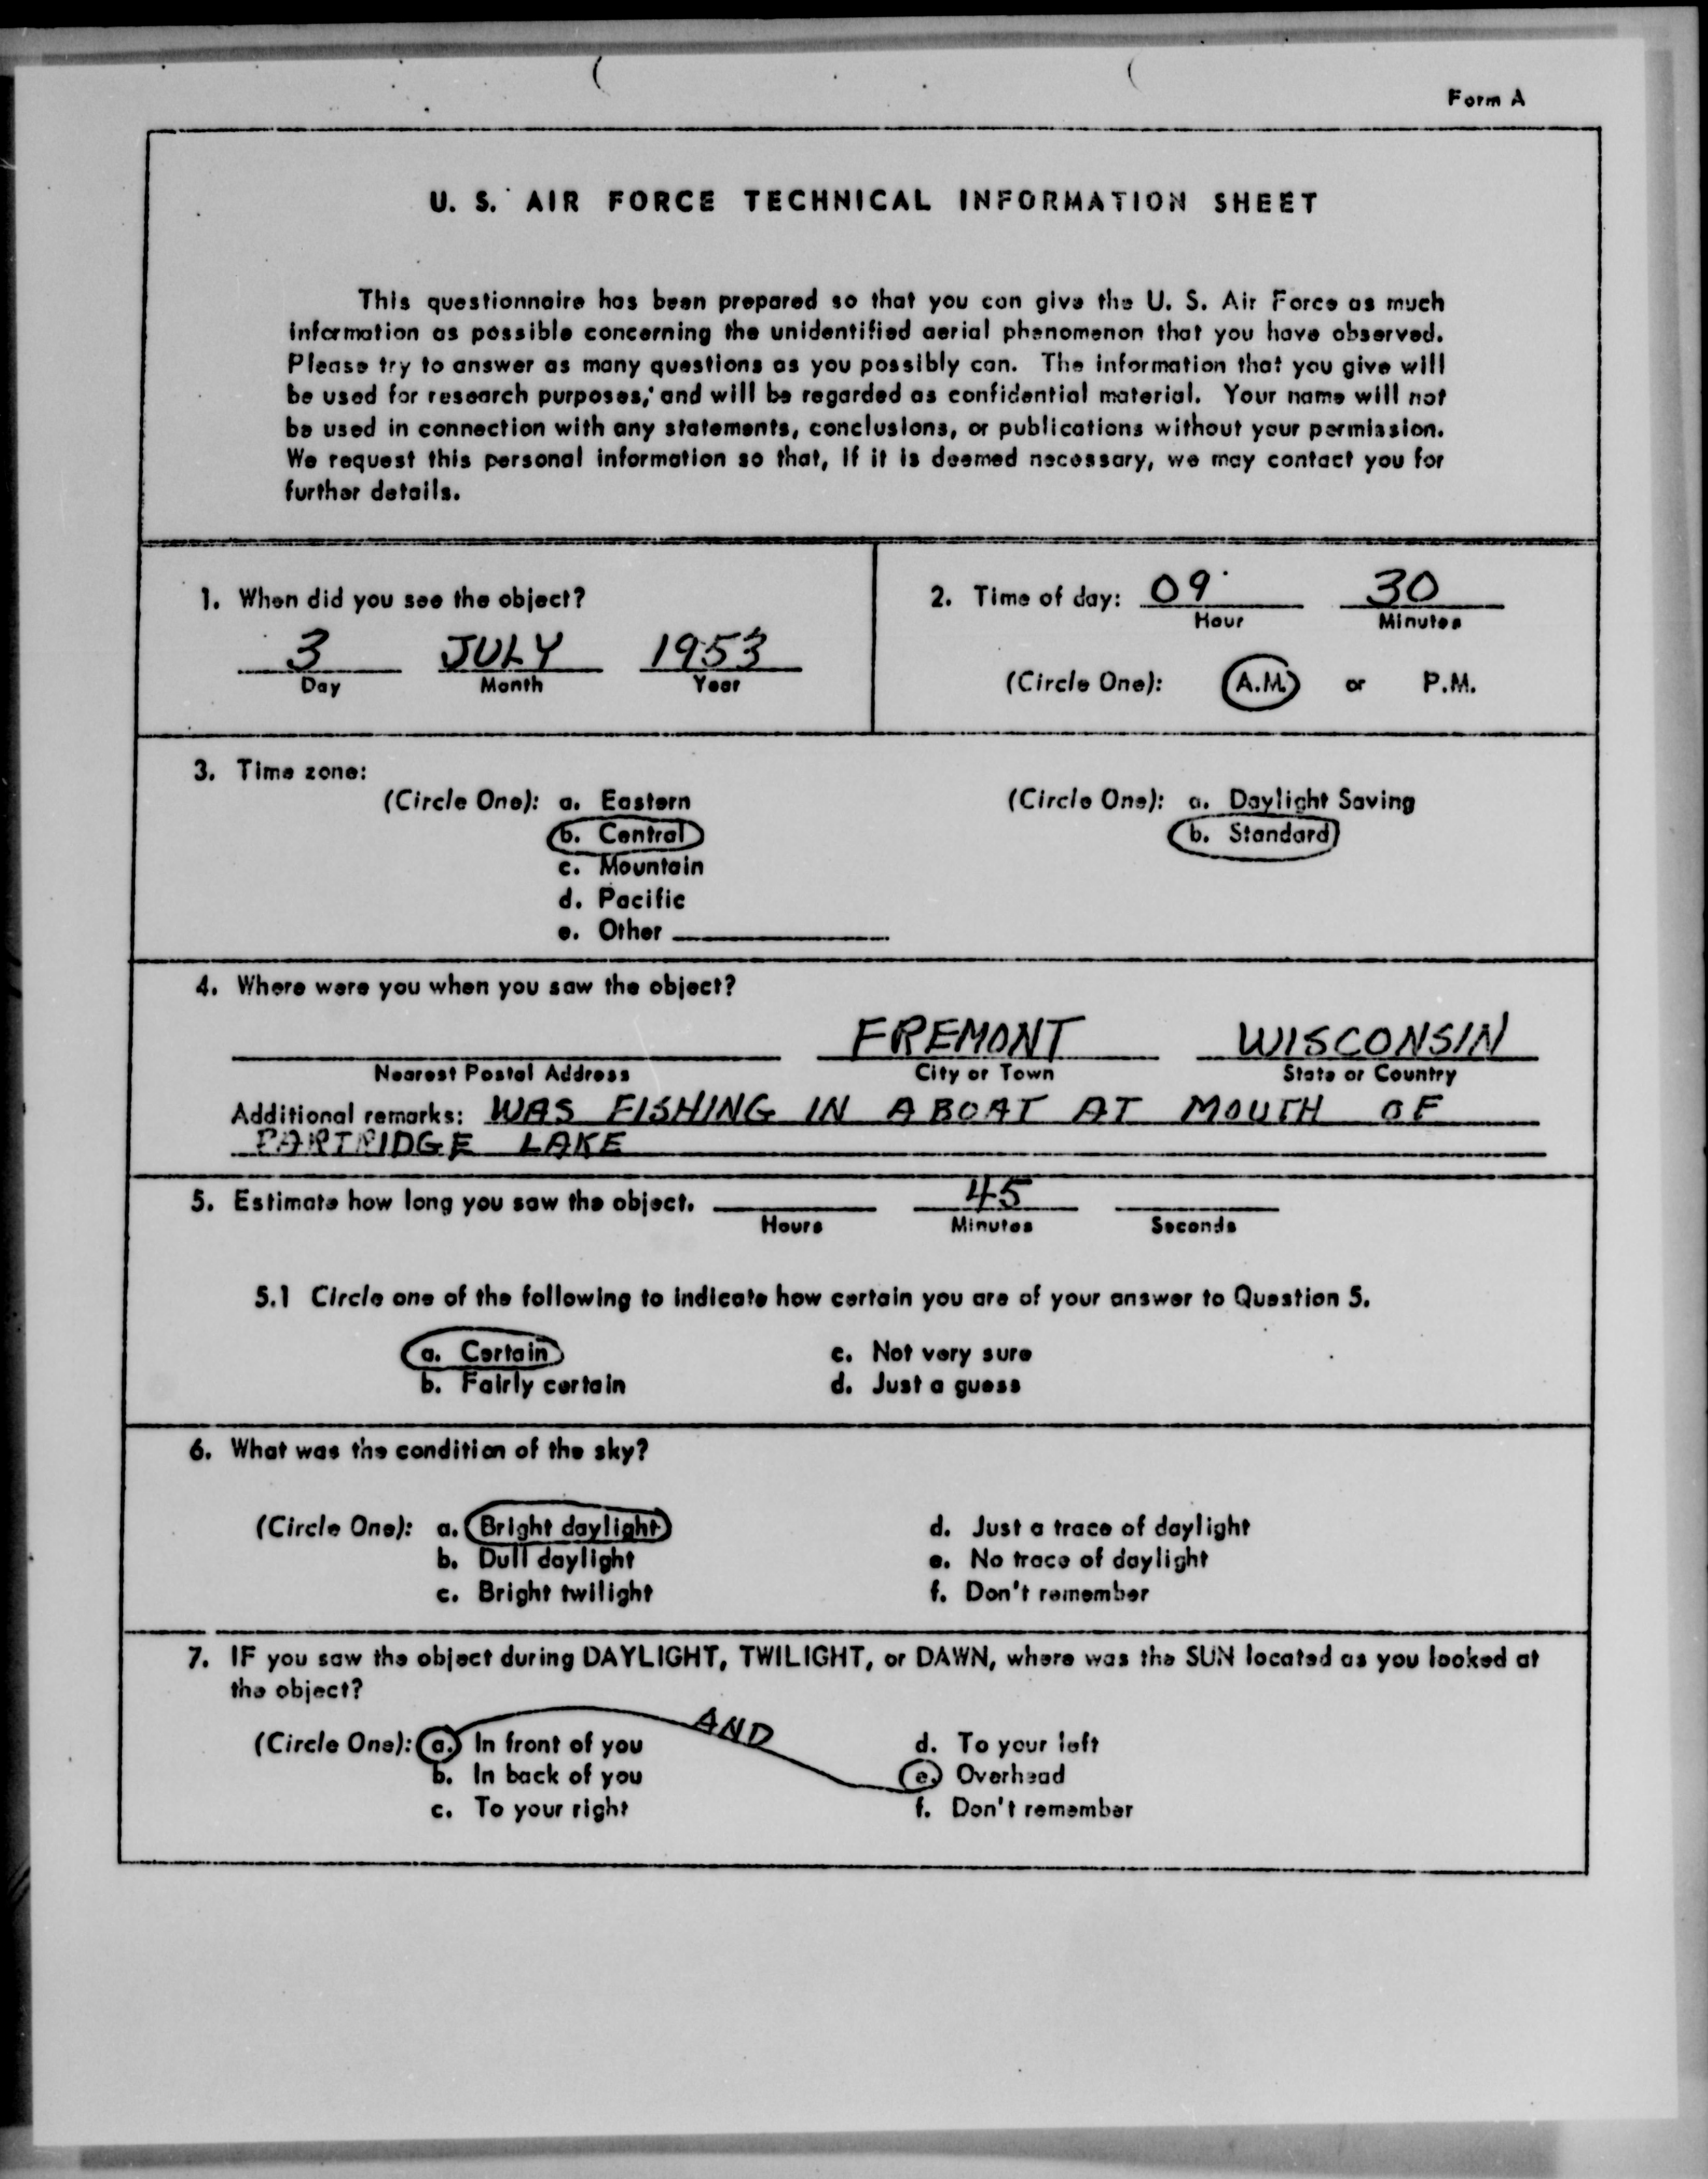 Form A
U. S. AIR FORCE TECHNICAL INFORMATION SHEET
This questionnaire has been prepared so that you can give the U. S. Air Force as much
information as possible concerning the unidentified aerial phenomenon that you have observed.
Please try to answer as many questions as you possibly can. The information that you give will
be used for research purposes, and will be regarded as confidential material. Your name will not
be used in connection with any statements, conclusions, or publications without your permission.
We request this personal information so that, if it is deemed necessary, we may contact you for
further details.
1. When did you see the object?
3 JULY 1953
Day Month Year
2. Time of day: 09 30
Hour Minutes
(Circle One): A.M. or P.M.
3. Time zone:
(Circle One): a. Eastern
b. Central
c. Mountain
d. Pacific
e. Other
(Circle One): a. Daylight Saving
b. Standard
4. Where were you when you saw the object?
FREMONT WISCONSIN
Nearest Postal Address City or Town State or Country
Additional remarks: WAS FISHING IN A BOAT AT MOUTH OF
PARTRIDGE LAKE
5. Estimate how long you saw the object. 45
Hours Minutes Seconds
5.1 Circle one of the following to indicate how certain you are of your answer to Question 5.
a. Certain c. Not very sure
b. Fairly certain d. Just a guess
6. What was the condition of the sky?
(Circle One): a. Bright daylight d. Just a trace of daylight
b. Dull daylight e. No trace of daylight
c. Bright twilight f. Don't remember
7. IF you saw the object during DAYLIGHT, TWILIGHT, or DAWN, where was the SUN located as you looked at
the object?
AND
(Circle One): a. In front of you d. To your left
b. In back of you e. Overhead
c. To your right f. Don't remember